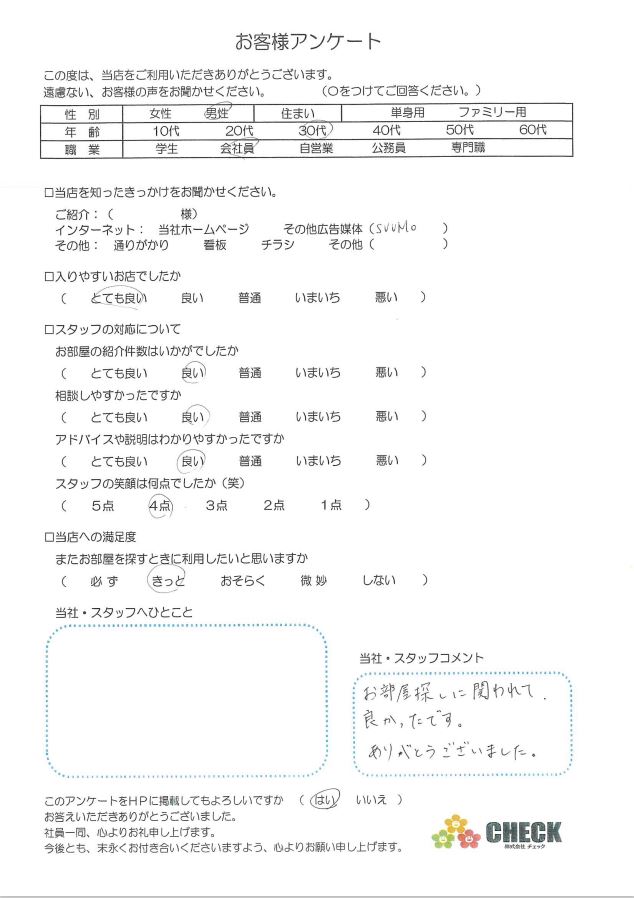 お客様アンケート
この度は、当店をご利用いただきありがとうございます。
遠慮ない、お客様の声をお聞かせください。　（○をつけてご回答ください。）
性　別　女性　男性　住まい　単身用　ファミリー用
年　齢　10代　20代　30代　40代　50代　60代
職　業　学生　会社員　自営業　公務員　専門職
□当店を知ったきっかけをお聞かせください。
ご紹介：（　　　　　様）
インターネット：　当社ホームページ　　その他広告媒体（SUUMO　　）
その他：　通りがかり　　看板　　チラシ　　その他（　　　　　）
□入りやすいお店でしたか
（　とても良い　良い　普通　いまいち　悪い　）
□スタッフの対応について
お部屋の紹介件数はいかがでしたか
（　とても良い　良い　普通　いまいち　悪い　）
相談しやすかったですか
（　とても良い　良い　普通　いまいち　悪い　）
アドバイスや説明はわかりやすかったですか
（　とても良い　良い　普通　いまいち　悪い　）
スタッフの笑顔は何点でしたか（笑）
（　５点　４点　３点　２点　１点　）
□当店への満足度
またお部屋を探すときに利用したいと思いますか
（　必ず　きっと　おそらく　微妙　しない　）
当社・スタッフへひとこと
当社・スタッフコメント
お部屋探しに関われて、
良かったです。
ありがとうございました。
このアンケートをＨＰに掲載してもよろしいですか　（　はい　いいえ　）
お答えいただきありがとうございました。
社員一同、心よりお礼申し上げます。
今後とも、末永くお付き合いくださいますよう、心よりお願い申し上げます。
CHECK
株式会社 チェック